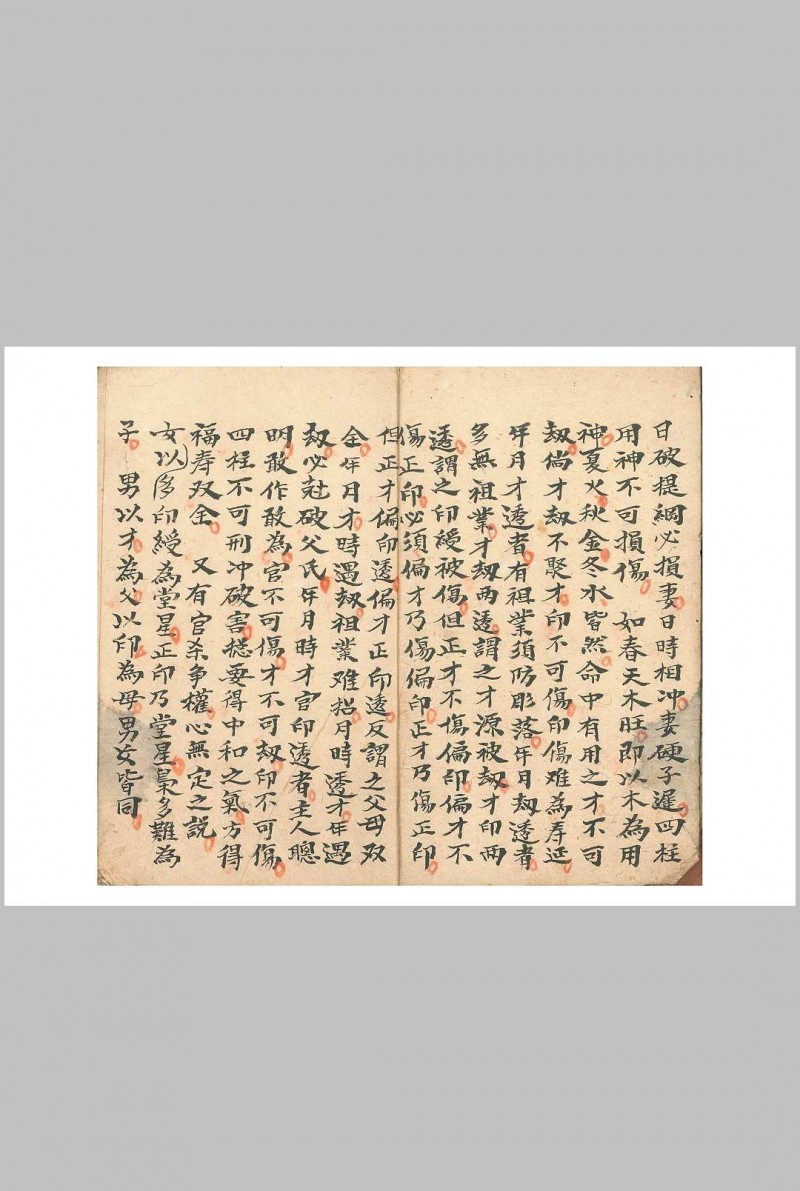 日破提綱必損妻日時相冲妻硬子遲四柱
用神不可損傷　如春天木旺即以木為用
神夏火秋金冬水皆然命中有用之才不可
刼倘才刼不聚才印不可傷印傷難為寿延
年月才透者有祖業須防彫落年月刼透者
多無祖業才刼両透謂之才源被刼才印両
透謂之印綬被傷但正才不傷偏印偏才不
傷正印必須偏才乃傷偏印正才乃傷正印
但正才偏印透偏才正印透反謂之父母双
全年月才時遇刼祖業难招月時透才年遇
刼必尅破父氏年月時才官印透者主人聰
明敢作敢為官不可傷才不可刼印不可傷
四柱不可刑冲破害揔要得中和之氣方得
福寿双全　又有官杀争權心無定之説
女以印綬為堂星正印乃堂星梟多難為
子　男以才為父以印為母男女皆同